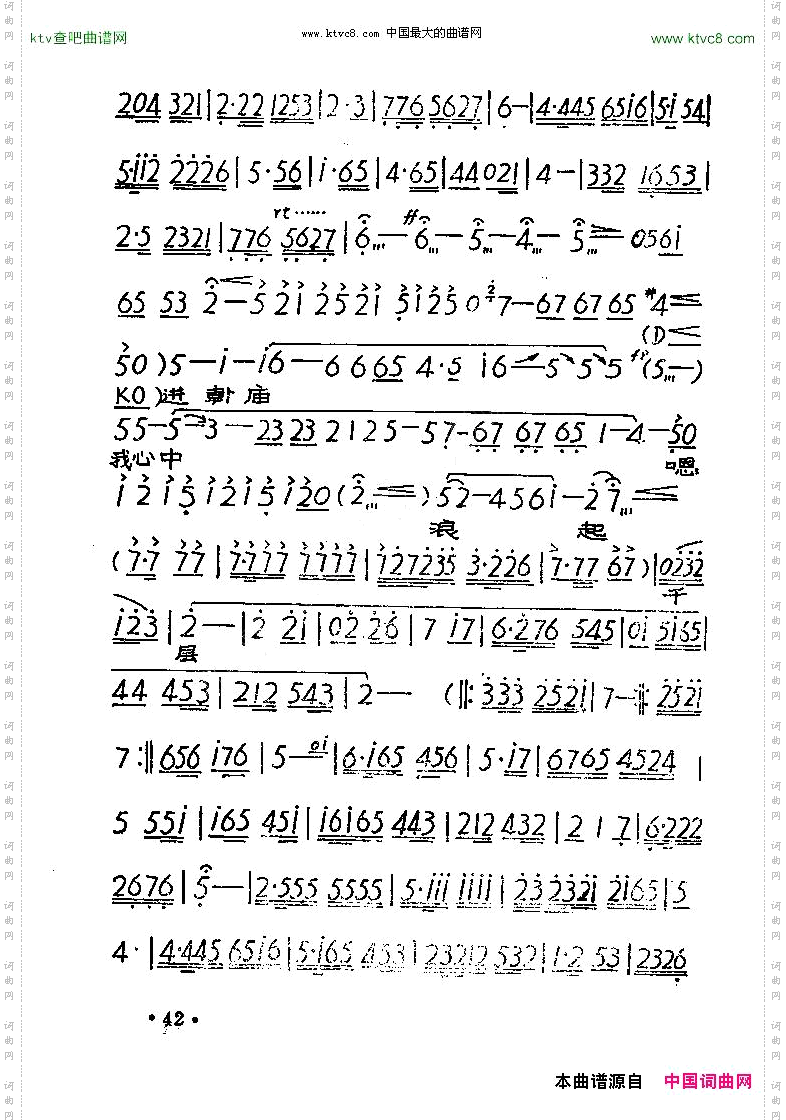 ktv查吧曲谱网
www.ktvc8.com 中国最大的曲谱网
www.ktvc8.com
204 321|2·22 1253|2·3|776 5627|6—|4·445 65i6|5·i 54|
5·ii2 2226|5·56|i·65|4·65|44 021|4—|332 1653|
rt…… ff
2·5 2321|776 5627|6—6—5—4—5 056i
65 53 2—5 2i 252i 5i25 0 7—67 67 65 #4
(D
50)5—i—i6—6 6 65 4·5 i6—5 5 5 (5—)
KO)进朝庙
55—5 3—23 23 2125—57-67 67 65 1—4—50
我心中 嗯
i 2 i 5 i 2 i 5 i20(2 )52—456i—27
浪 起
(7·7 77|7·777 7777|727235 3·226|7·77 67)|0232
千
i23|2—|2 2i|02 26|7 i7|6·276 545|0i 5i65|
层
44 453|212 543|2— (‖:333 252i|7—:‖:252i
7:‖656 i76|5—0i|6·i65 456|5·i7|6765 4524|
5 55i|i65 45i|i6i65 443|212 432|2 1 7|6·222
2676|5—|2·555 5555|5·iii iiii|23 2232i 2i65|5
4·|4·445 65i6|5·i65 453|23212 532|1·2 53|2326
·42·
本曲谱源自 中国词曲网